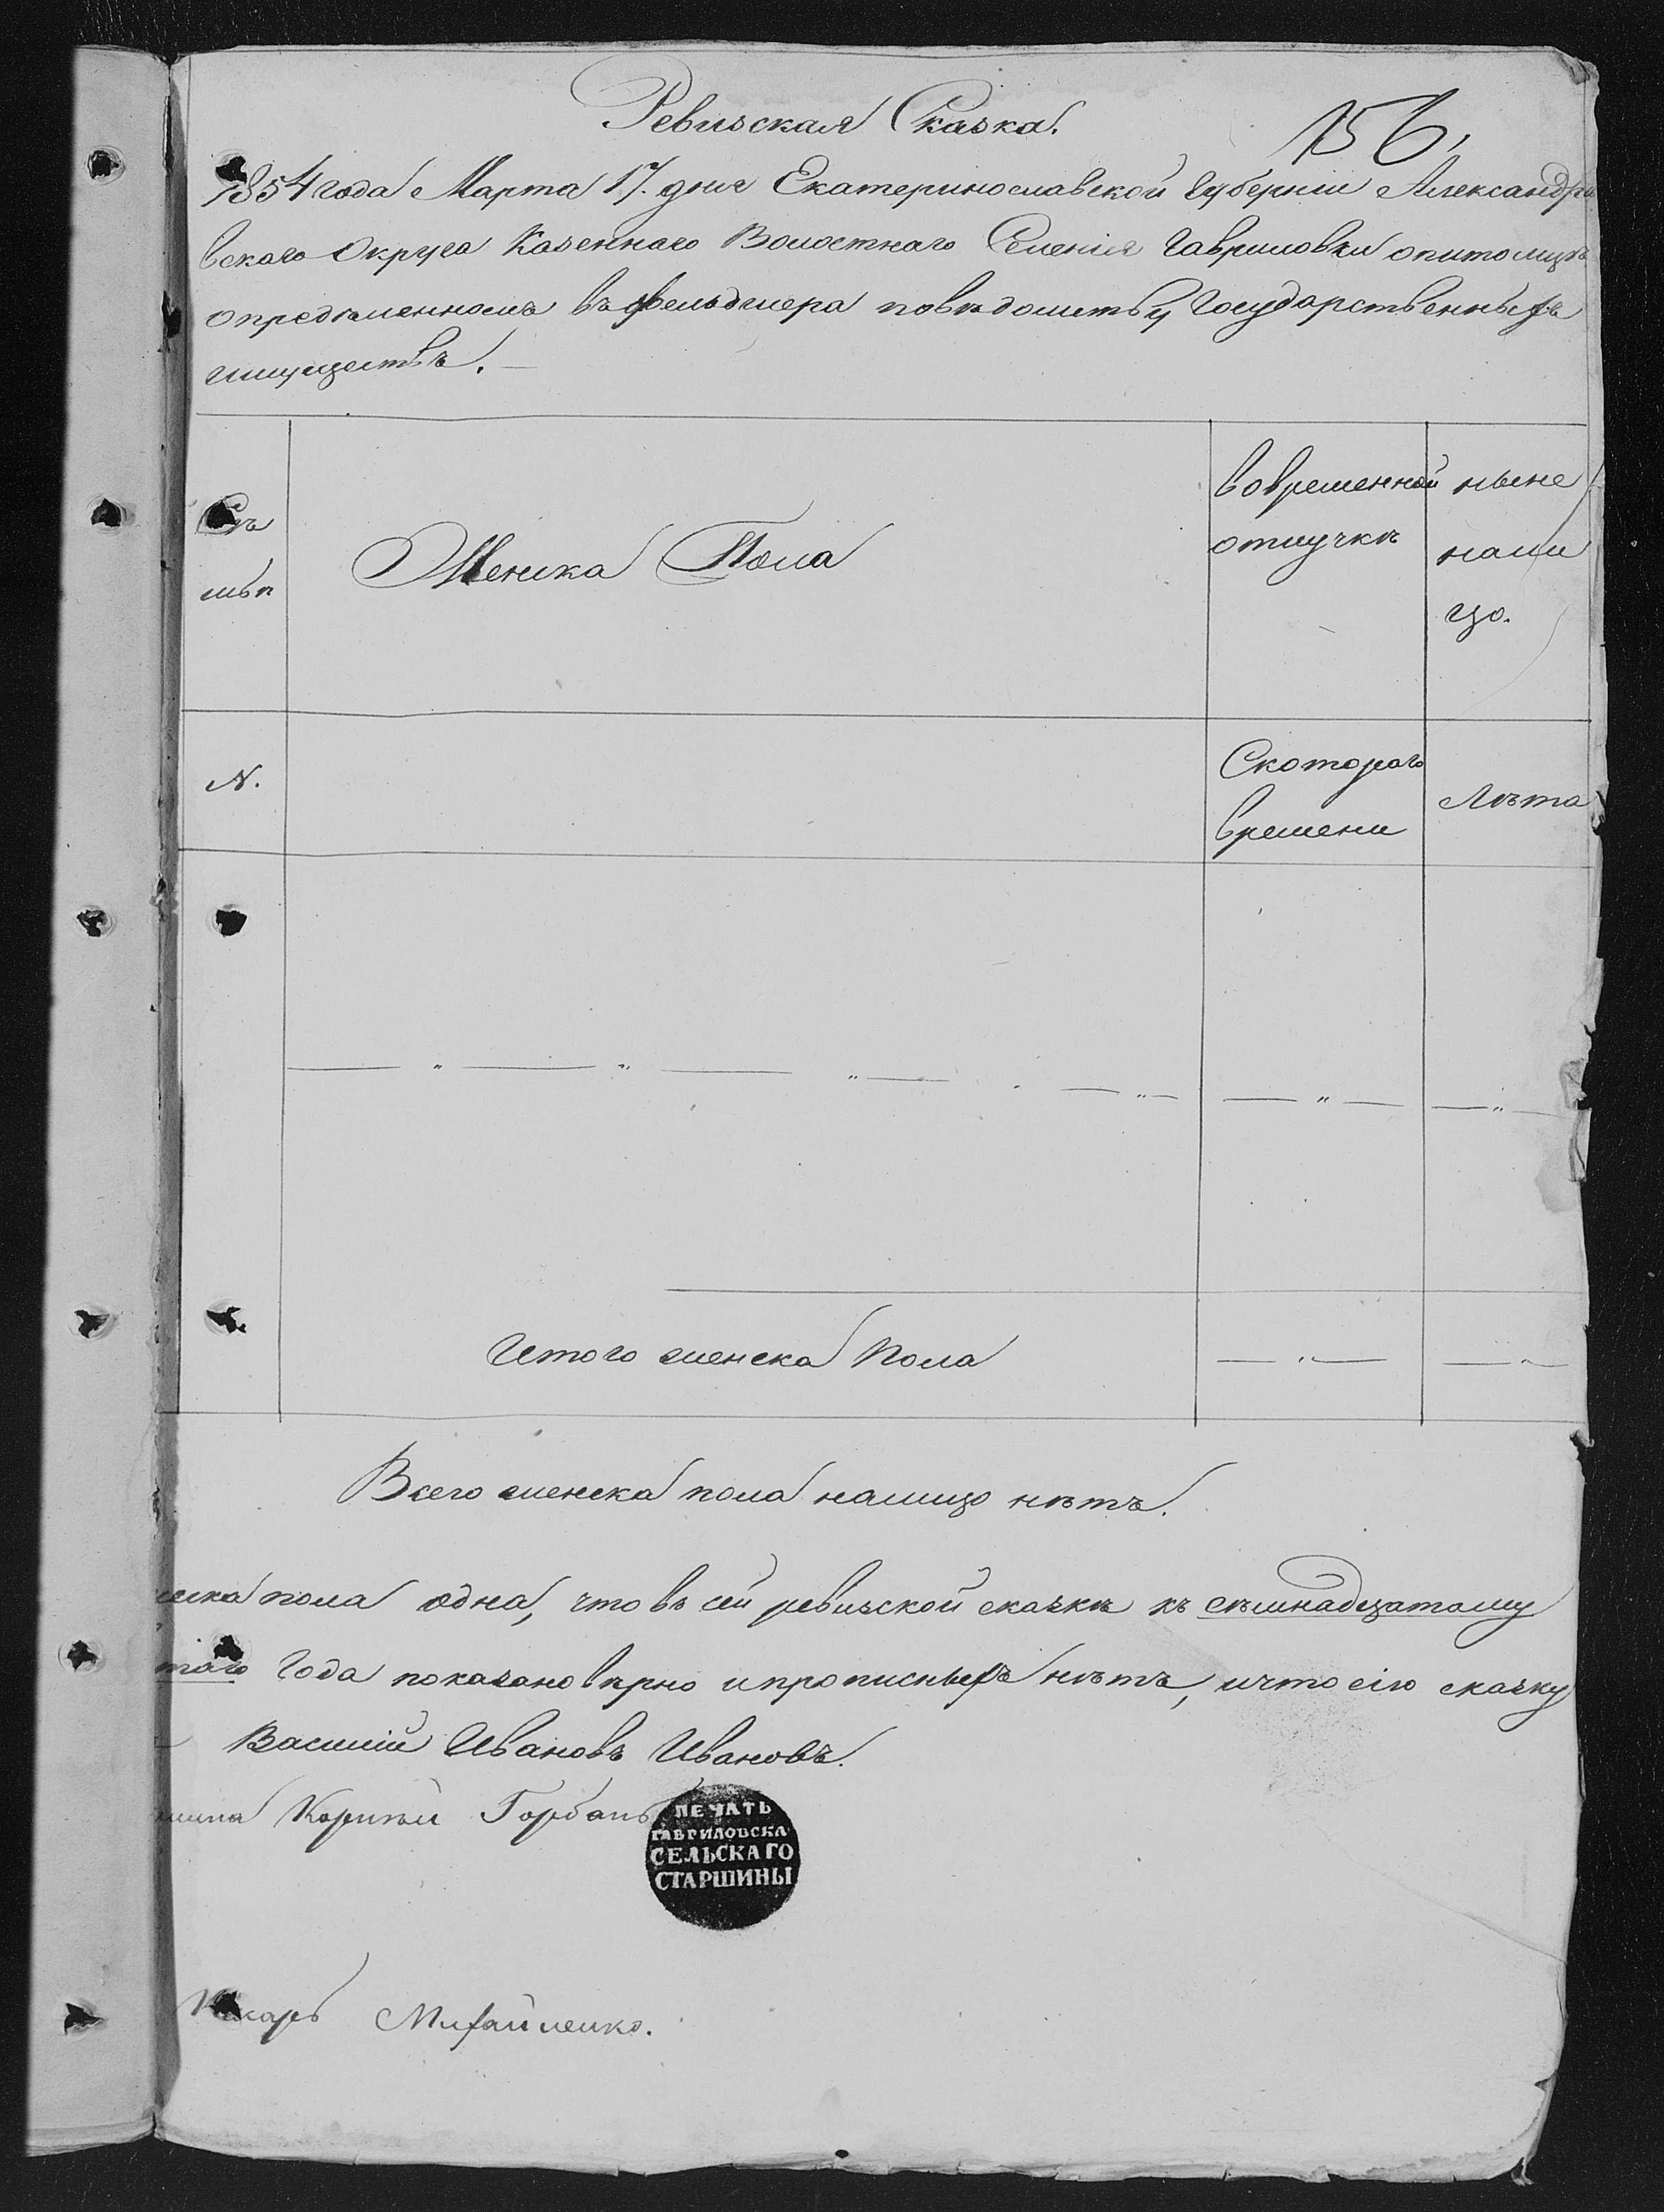 Ревизская Сказка.
156,
1854 года Марта 17. дня Екатеринославской Губерніи Александро
вскаго Округа Казеннаго Волостнаго Селенія Гавриловки опитомцѣ
определенномъ въ фельдшера повѣдомству Государственныхъ
имуществъ. —
Семья
Женска Пола
Вовременной отлучкѣ
ныне нали цо.
N.
Скотораго времени
Лѣта
Итого женска Пола
Всего женска пола налицо нѣтъ.
пола одна, что въ сей ревизской сказкѣ къ семнадцатому
таго Года показано вѣрно и прописныхъ нѣтъ, и что сію сказку
Василій Ивановъ Ивановъ.
шина Корнѣй Горбань
ПЕЧАТЬ
ГАВРИЛОВСКА
СЕЛЬСКАГО
СТАРШИНЫ
Писарь Михайленко.